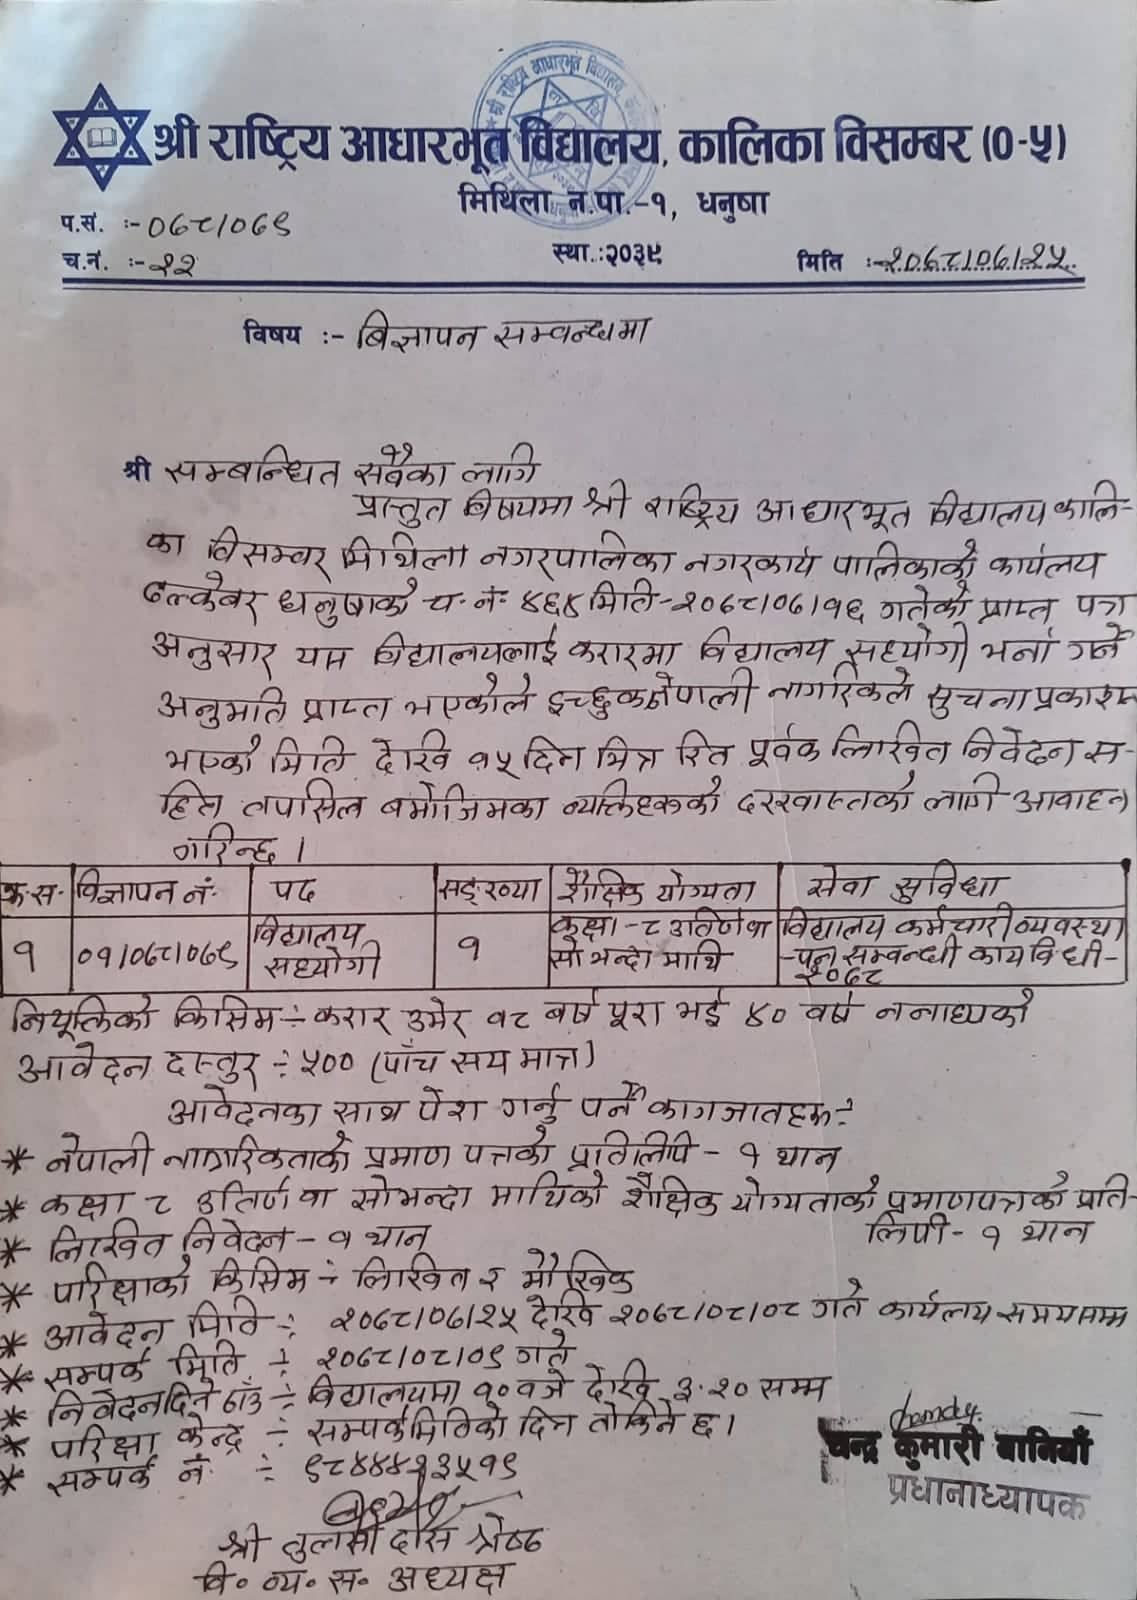 श्री राष्ट्रिय आधारभूत विद्यालय, कालिका विसम्बर (०-५)
मिथिला न.पा.-१, धनुषा
प.सं. :- ०७८/०७९
च.नं. :- २२
स्था.:२०३९
मिति :- २०७८/०७/२५
विषय :- बिज्ञापन सम्वन्धमा
श्री सम्बन्धित सवैका लागि
प्रस्तुत बिषयमा श्री राष्ट्रिय आधारभूत विद्यालय कालि-
का विसम्वर मिथिला नगरपालिका नगरकार्य पालिकाको कार्यलय
ढल्केवर धनुषाको च. नं. ४६४ मिति-२०७८/०७/१६ गतेको प्राप्त पत्र
अनुसार यस विद्यालयलाई करारमा विद्यालय सहयोगी भर्ना गर्ने
अनुमति प्राप्त भएकोले इच्छुक नेपाली नागरिकले सुचना प्रकाशन
भएको मिति देखि १५ दिन भित्र रित पूर्वक लिखित निवेदन स-
हित तपासिल बमोजिमका व्यक्तिहरुको दरखास्तको लागि आवाहन
गरिन्छ ।
क्र.स. विज्ञापन नं. पद सङ्ख्या शैक्षिक योग्यता सेवा सुविधा
१ ०१/०७८/०७९ विद्यालय सहयोगी १ कक्षा-८ उतिर्ण वा सो भन्दा माथि विद्यालय कर्मचारी व्यवस्था-पन सम्बन्धी कार्यविधी-२०७८
नियूक्तिको किसिम ÷ करार उमेर १८ बर्ष पूरा भई ४० वर्ष ननाघेको
आवेदन दस्तुर ÷ ५०० (पाँच सय मात्र)
आवेदनका साथ पेश गर्नु पर्ने कागजातहरु ÷
* नेपाली नागरिकताको प्रमाण पत्रको प्रतिलिपी - १ थान
* कक्षा ८ उतिर्ण वा सोभन्दा माथिको शैक्षिक योग्यताको प्रमाणपत्रको प्रति-
लिपी - १ थान
* लिखित निवेदन - १ थान
* परिक्षाको किसिम ÷ लिखित र मौखिक
* आवेदन मिति ÷ २०७८/०७/२५ देखि २०७८/०८/०८ गते कार्यलय समयसम्म
* सम्पर्क मिति ÷ २०७८/०८/०९ गते
* निवेदन दिने ठाँउ ÷ विद्यालयमा १० वजे देखि ३.२० सम्म
* परिक्षा केन्द्र ÷ सम्पर्कमितिको दिन तोकिने छ।
* सम्पर्क नं ÷ ९८४४४२३५१९
चन्द्र कुमारी वानियाँ
प्रधानाध्यापक
श्री तुलसी दास श्रेष्ठ
वि. व्य. स. अध्यक्ष